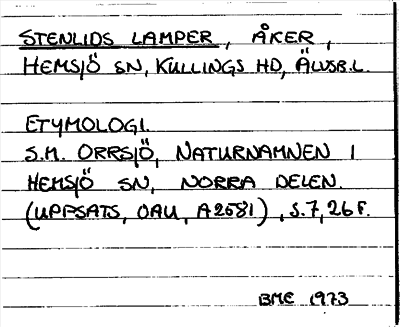 STENLIDS LAMPER, ÅKER,
HEMSJÖ SN, KULLINGS HD, ÄLVSB.L.
ETYMOLOGI.
S.M. ORRSJÖ, NATURNAMNEN I
HEMSJÖ SN, NORRA DELEN.
(UPPSATS, OAU, A2681), S.7, 26 F.
BME 1973